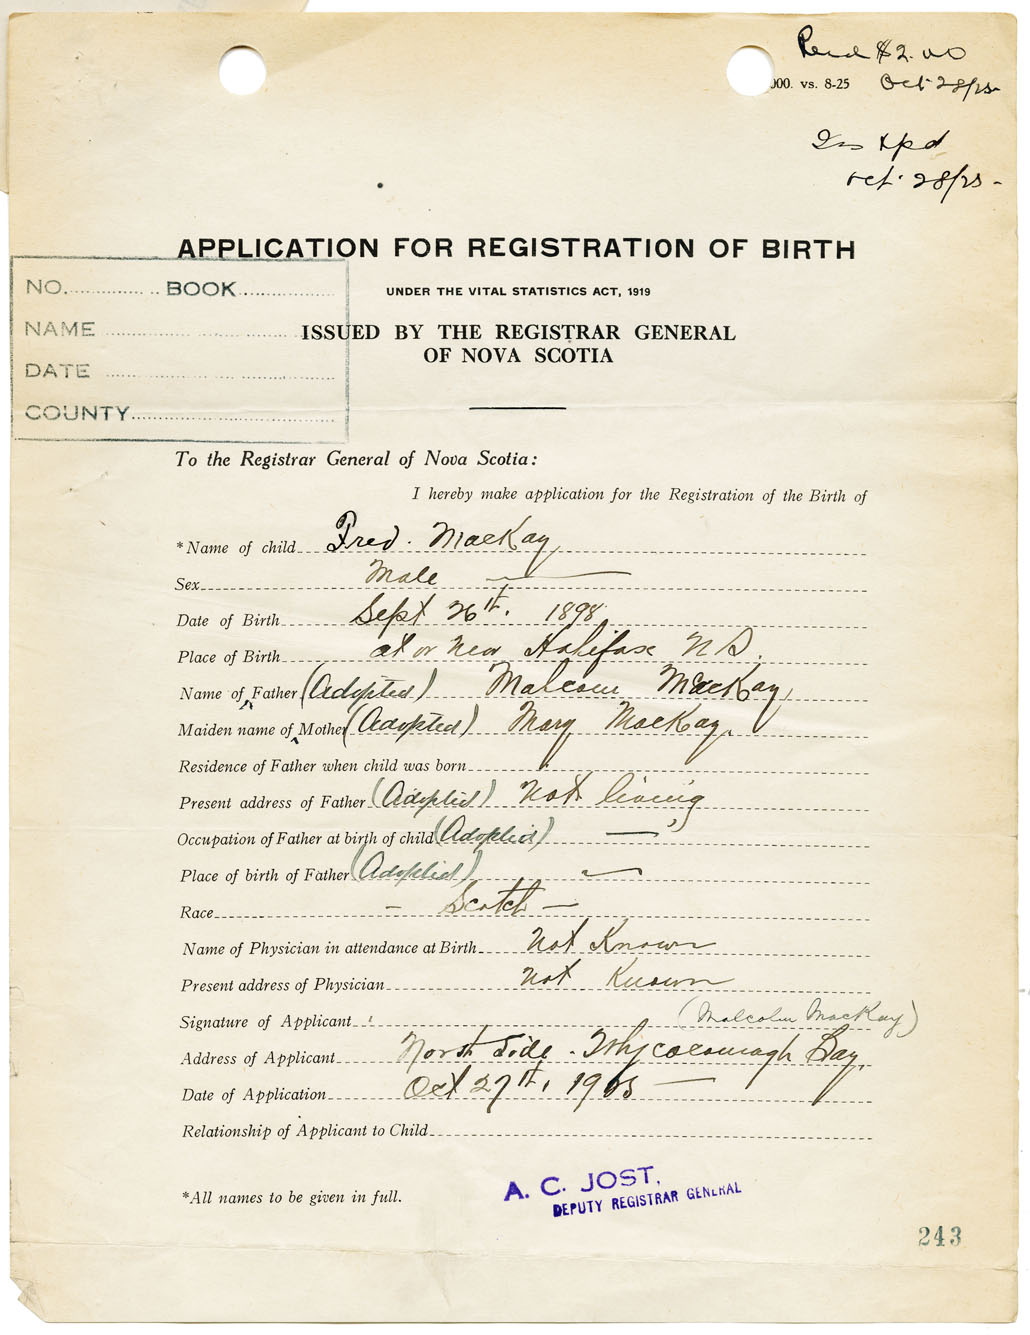 Recd $2.00
000. vs. 8-25 Oct 28/25
Oct. 28/25
APPLICATION FOR REGISTRATION OF BIRTH
UNDER THE VITAL STATISTICS ACT, 1919
ISSUED BY THE REGISTRAR GENERAL
OF NOVA SCOTIA
NO. BOOK
NAME
DATE
COUNTY
To the Registrar General of Nova Scotia:
I hereby make application for the Registration of the Birth of
*Name of child Fred. MacKay
Sex Male
Date of Birth Sept 26th. 1898
Place of Birth at or near Halifax N S.
Name of Father (Adopted) Malcolm MacKay
Maiden name of Mother (Adopted) Mary MacKay.
Residence of Father when child was born
Present address of Father (Adopted) Not living
Occupation of Father at birth of child (Adopted) —
Place of birth of Father (Adopted) —
Race - Scotch -
Name of Physician in attendance at Birth Not Known
Present address of Physician Not Known
Signature of Applicant (Malcolm MacKay)
Address of Applicant North Side - Whycocomagh Bay.
Date of Application Oct 27th, 1925 —
Relationship of Applicant to Child
*All names to be given in full.
A. C. JOST,
DEPUTY REGISTRAR GENERAL
243